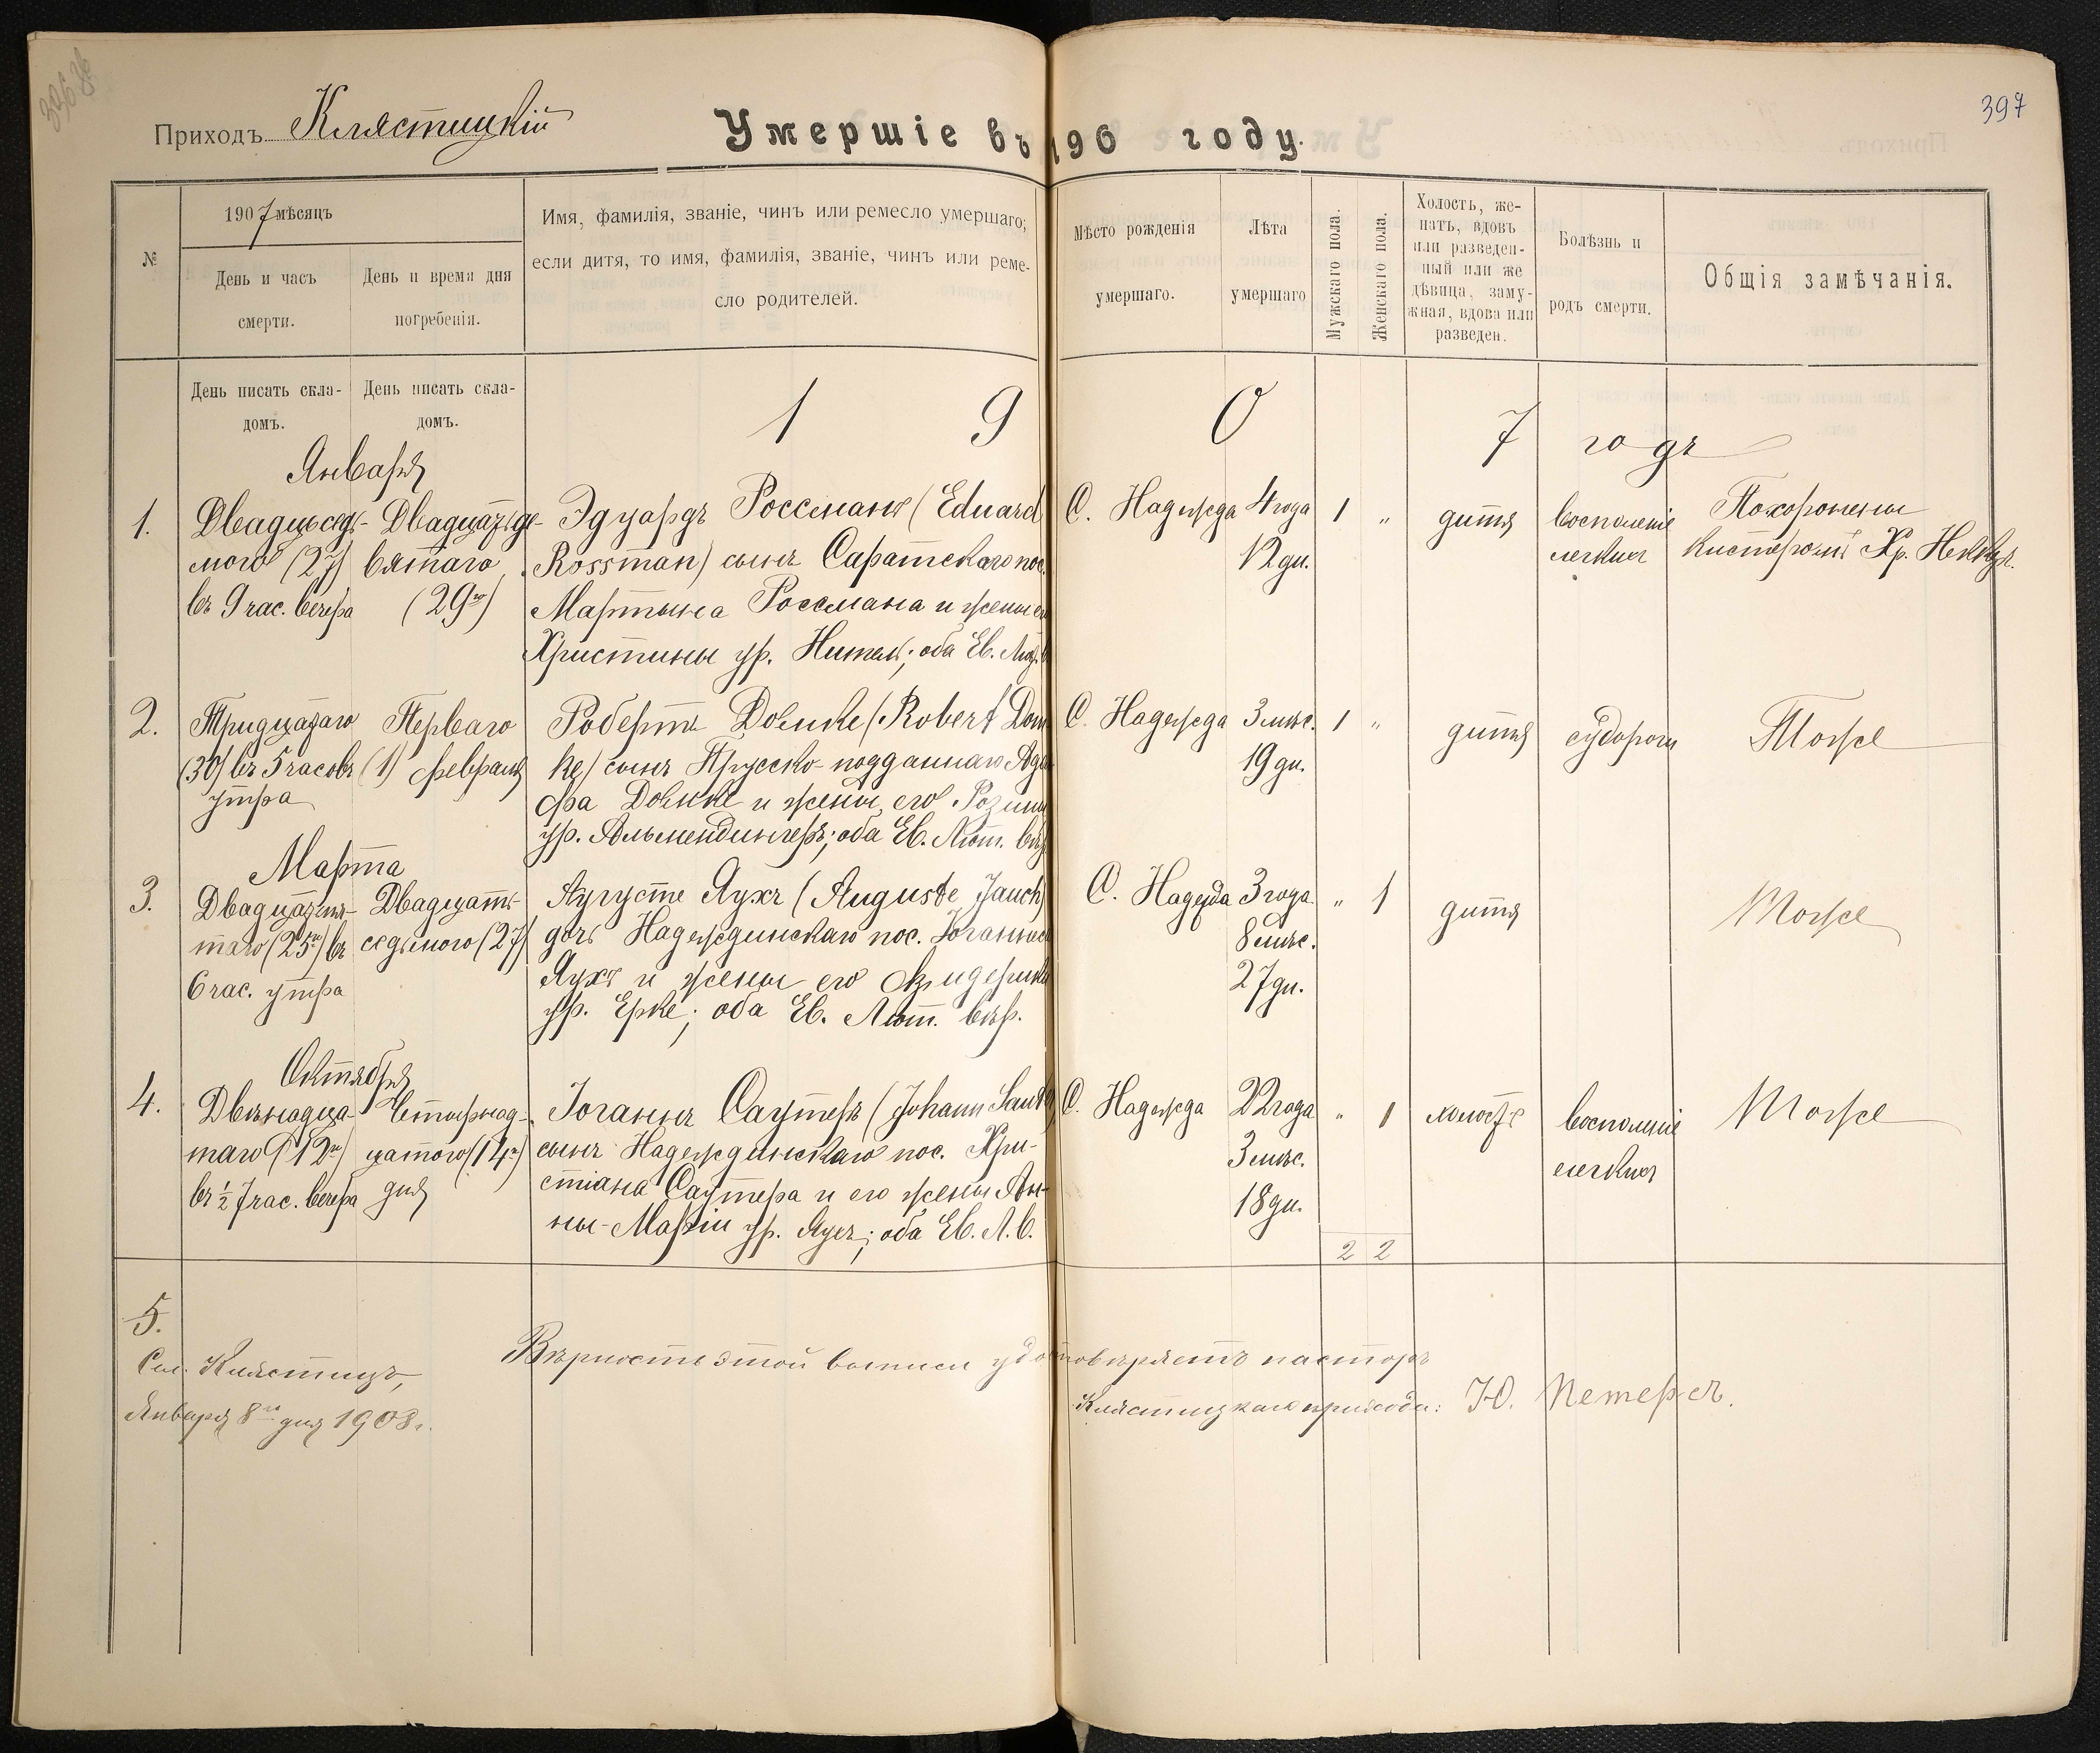 397
Приходъ Клястицкій
Умершіе въ 190 году.
№
1907 мѣсяцъ
День и часъ
смерти.
День и время дня
погребенія.
Имя, фамилія, званіе, чинъ или ремесло умершаго;
если дитя, то имя, фамилія, званіе, чинъ или реме-
сло родителей.
Мѣсто рожденія
умершаго.
Лѣта
умершаго
Мужскаго пола.
Женскаго пола.
Холостъ, же-
натъ, вдовъ
или разведен-
ный или же
дѣвица, заму-
жная, вдова или
разведен.
Болѣзнь и
родъ смерти.
Общія замѣчанія.
День писать скла-
домъ.
День писать скла-
домъ.
1 9 0 7 годъ
Января
1.
Двадцьседь-
мого (27)
въ 9 час. вечера
Двадцать де-
вятаго
(29го)
Эдуардъ Россманъ (Eduard
Rossman) сынъ Саратскаго пос.
Мартына Россмана и жены его
Христины ур. ; оба Ев. Лют. в
С. Надежда
4 года
12 дн.
1 "
дитя
воспаленіе
легкихъ
Похоронены
кистеромъ Хр.
2.
Тридцатаго
(30) въ 5 часовъ
утра
Перваго
(1) февраля
Робертъ Домке (Robert Dom
ke) сынъ Прусско-подданнаго
Домке и жены его Розины
ур. Альмендингеръ; оба Ев. Лют. вѣр
С. Надежда
3 мѣс.
19 дн.
1 "
дитя
судороги
Тоже
Марта
3.
Двадцать пя-
таго (25го) въ
6 час. утра
Двадцать
седьмого (27)
Аугусте Яухъ (Auguste Jauch)
дочь Надеждинскаго пос. Іоганна
Яухъ и жены его Фридерики
ур. Ерке; оба Ев. Лют. вѣр.
С. Надежда
3 года
8 мѣс.
27 дн.
" 1
дитя
Тоже
Октября
4.
Двѣнадца-
таго (12го)
въ ½ 7 час. вечера
Четырнад-
цатого (14го)
дня
Іоганнъ Саутеръ (Johann Saute
сынъ Надеждинскаго пос. Хри-
стіана Саутера и его жены Ан-
ны-Маріи ур. ; оба Ев. Л. В.
С. Надежда
22 года
3 мѣс.
18 дн.
" 1
холостъ
воспаленіе
легкихъ
Тоже
2 2
5.
Сел. Клястицъ,
Января 8го дня 1908 г.
Вѣрность этой выписи удостовѣряетъ пасторъ
Клястицкаго прихода: Ю. Петерсъ.